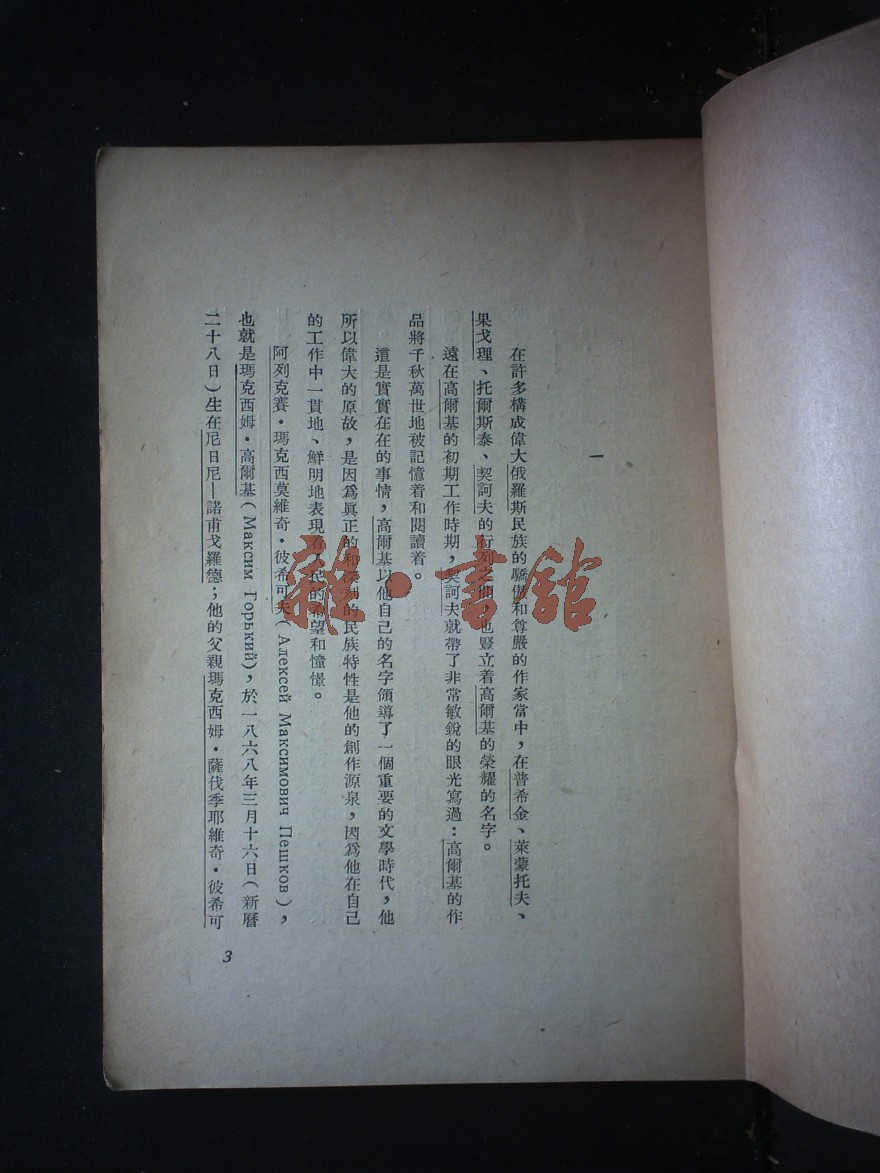 一
在許多構成偉大俄羅斯民族的驕傲和尊嚴的作家當中，在普希金、萊蒙托夫、
果戈理、托爾斯泰、契訶夫的行列之間，也豎立着高爾基的榮耀的名字。
遠在高爾基的初期工作時期，契訶夫就帶了非常敏銳的眼光寫過：高爾基的作
品將千秋萬世地被記憶着和閱讀着。
這是實實在在的事情，高爾基以他自己的名字領導了一個重要的文學時代，他
所以偉大的原故，是因爲眞正的和深刻的民族特性是他的創作源泉，因爲他在自己
的工作中一貫地、鮮明地表現着人民的希望和憧憬。
阿列克賽·瑪克西莫維奇·彼希可夫（Алексей Максимович Пешков），
也就是瑪克西姆·高爾基（Максим Горький），於一八六八年三月十六日（新曆
二十八日）生在尼日尼—諾甫戈羅德；他的父親瑪克西姆·薩伐季耶維奇·彼希可
3
雜·書館